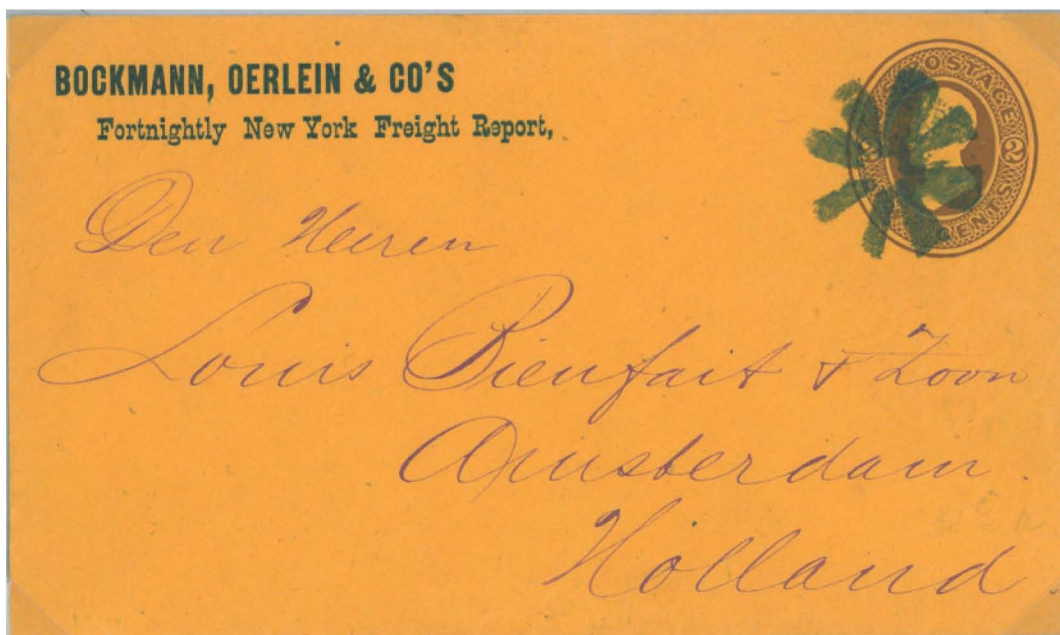 BOCKMANN, OERLEIN & CO'S
Fortnightly New York Freight Report,
POSTAGE
2
CENTS
Den Heeren
Louis Bienfait & Zoon
Amsterdam.
Holland